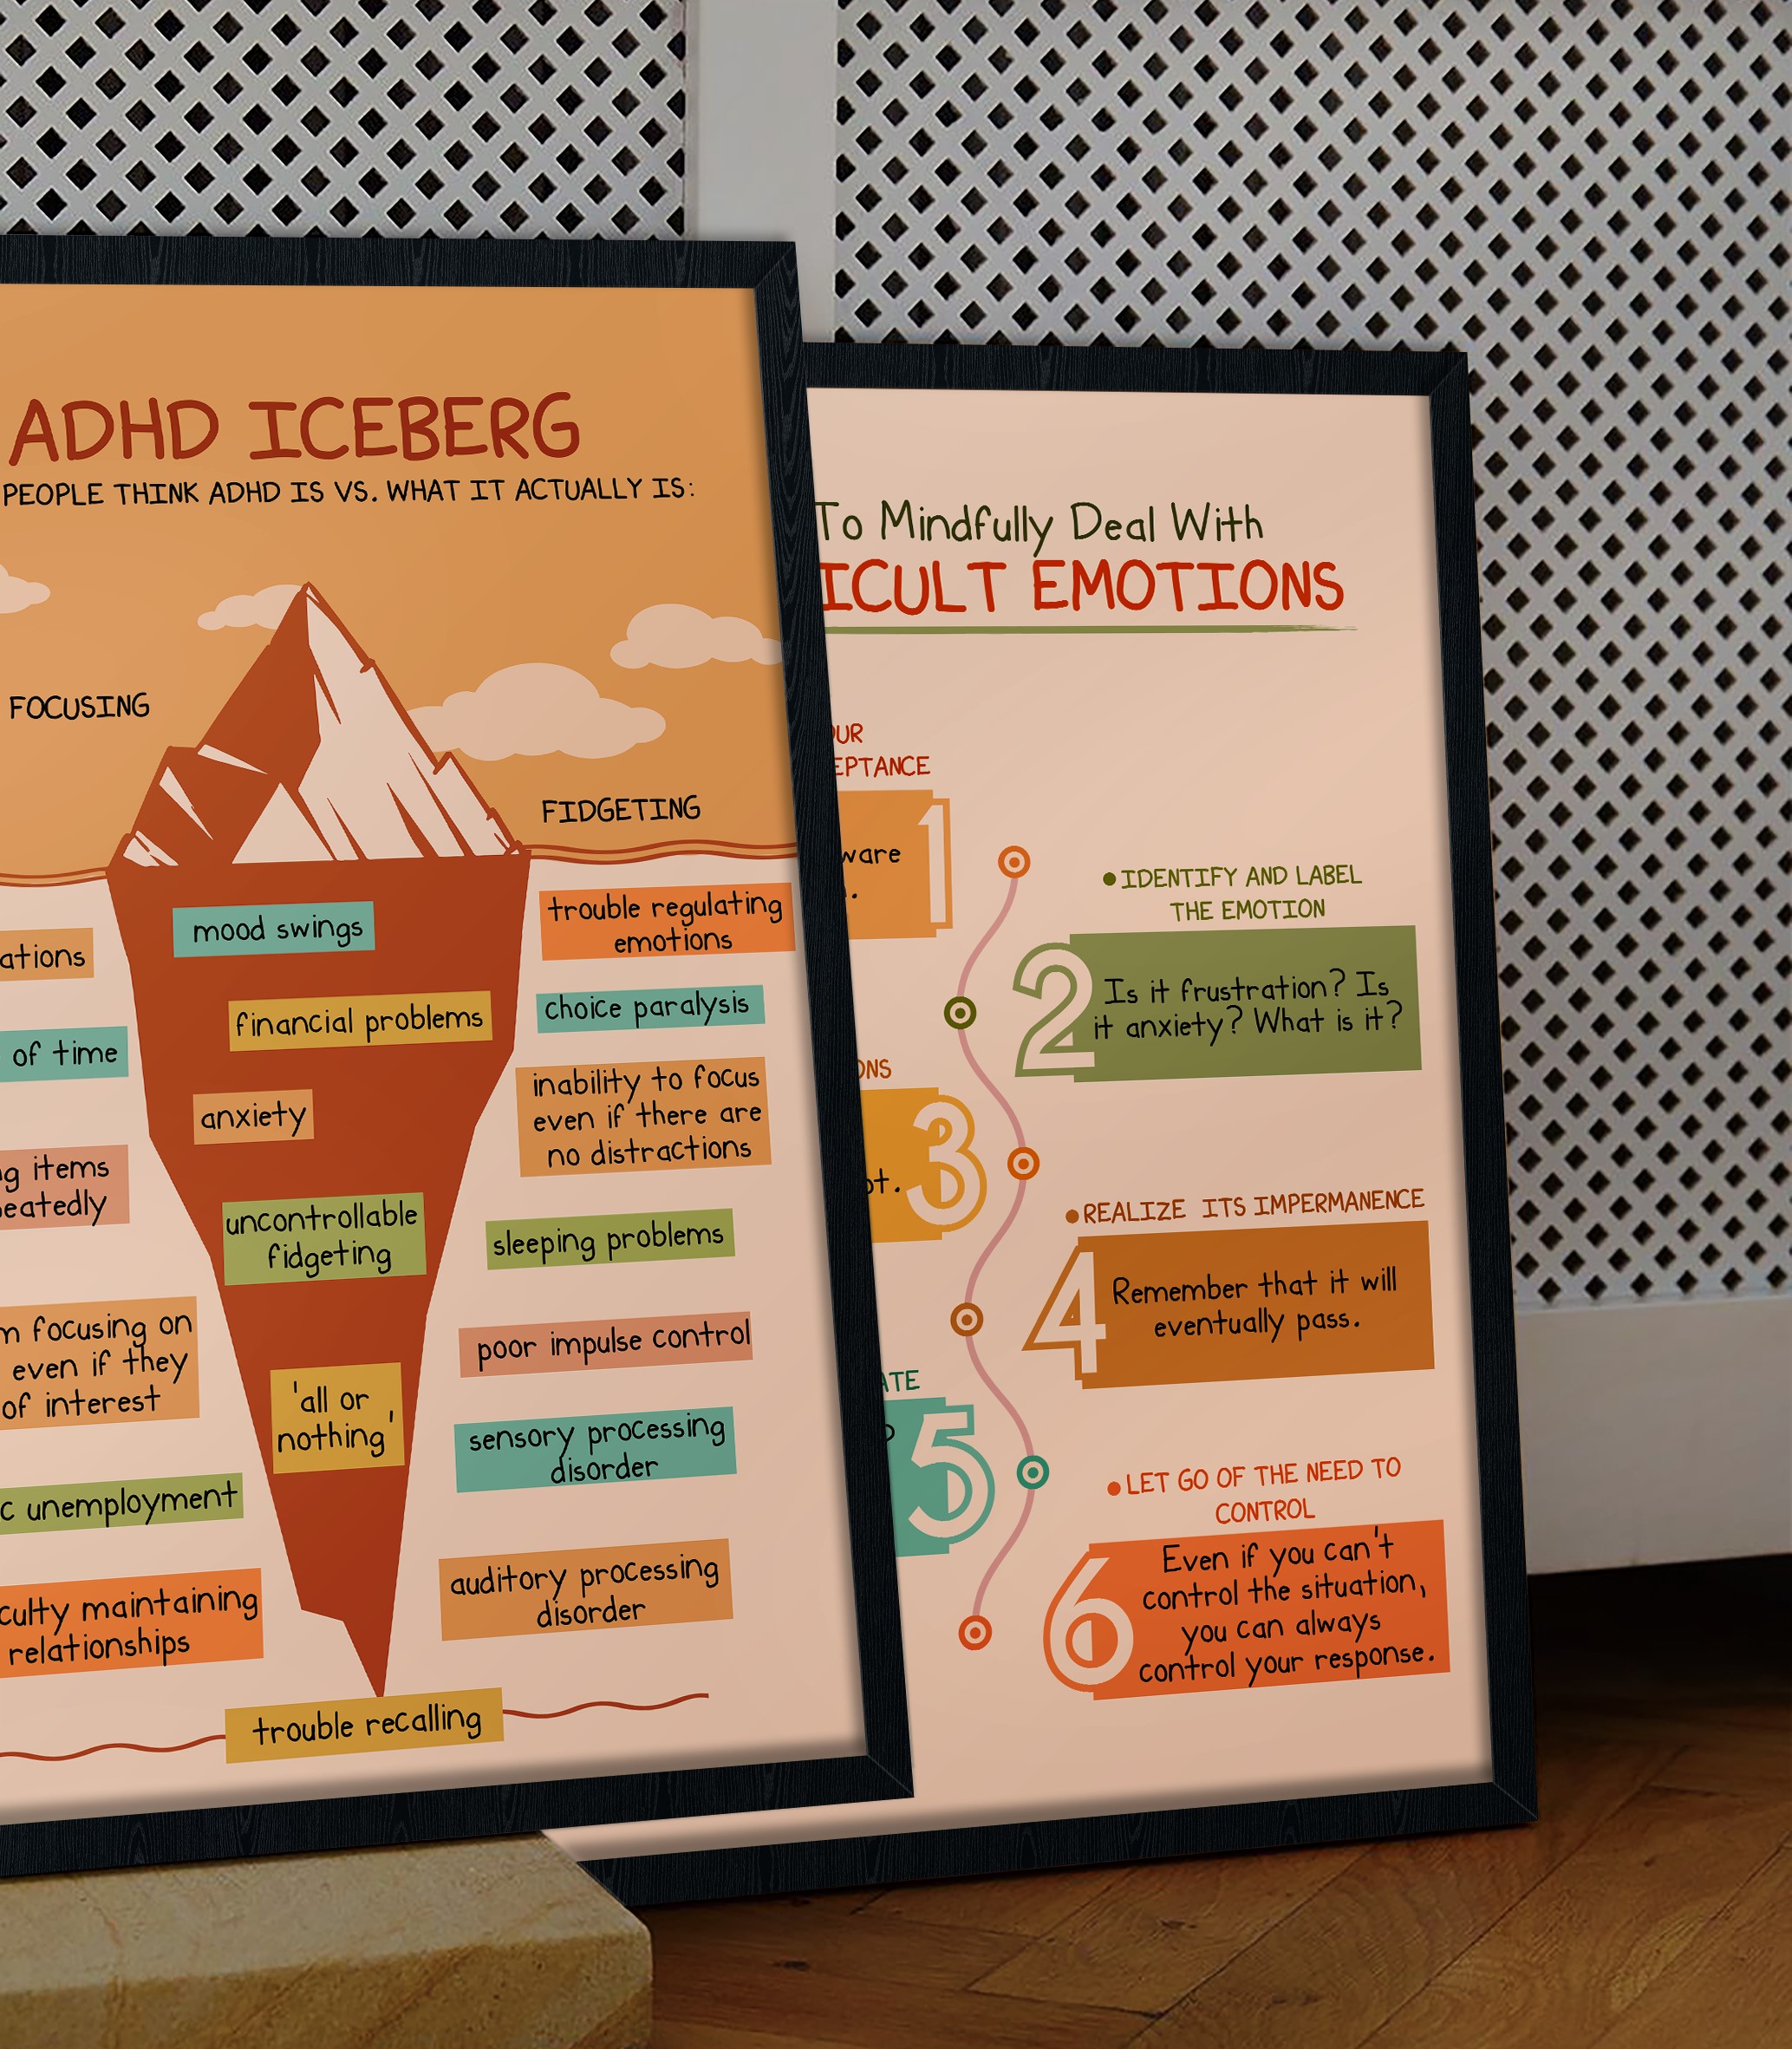 ADHD ICEBERG
PEOPLE THINK ADHD IS VS. WHAT IT ACTUALLY IS:
FOCUSING
FIDGETING
mood swings
financial problems
anxiety
uncontrollable
fidgeting
'all or
nothing'
trouble regulating
emotions
choice paralysis
inability to focus
even if there are
no distractions
sleeping problems
poor impulse control
sensory processing
disorder
auditory processing
disorder
of time
items
focusing on
even if they
of interest
unemployment
maintaining
relationships
trouble recalling
To Mindfully Deal With
EMOTIONS
1
• IDENTIFY AND LABEL
THE EMOTION
2
Is it frustration? Is
it anxiety? What is it?
3
• REALIZE ITS IMPERMANENCE
4
Remember that it will
eventually pass.
5
• LET GO OF THE NEED TO
CONTROL
6
Even if you can't
control the situation,
you can always
control your response.